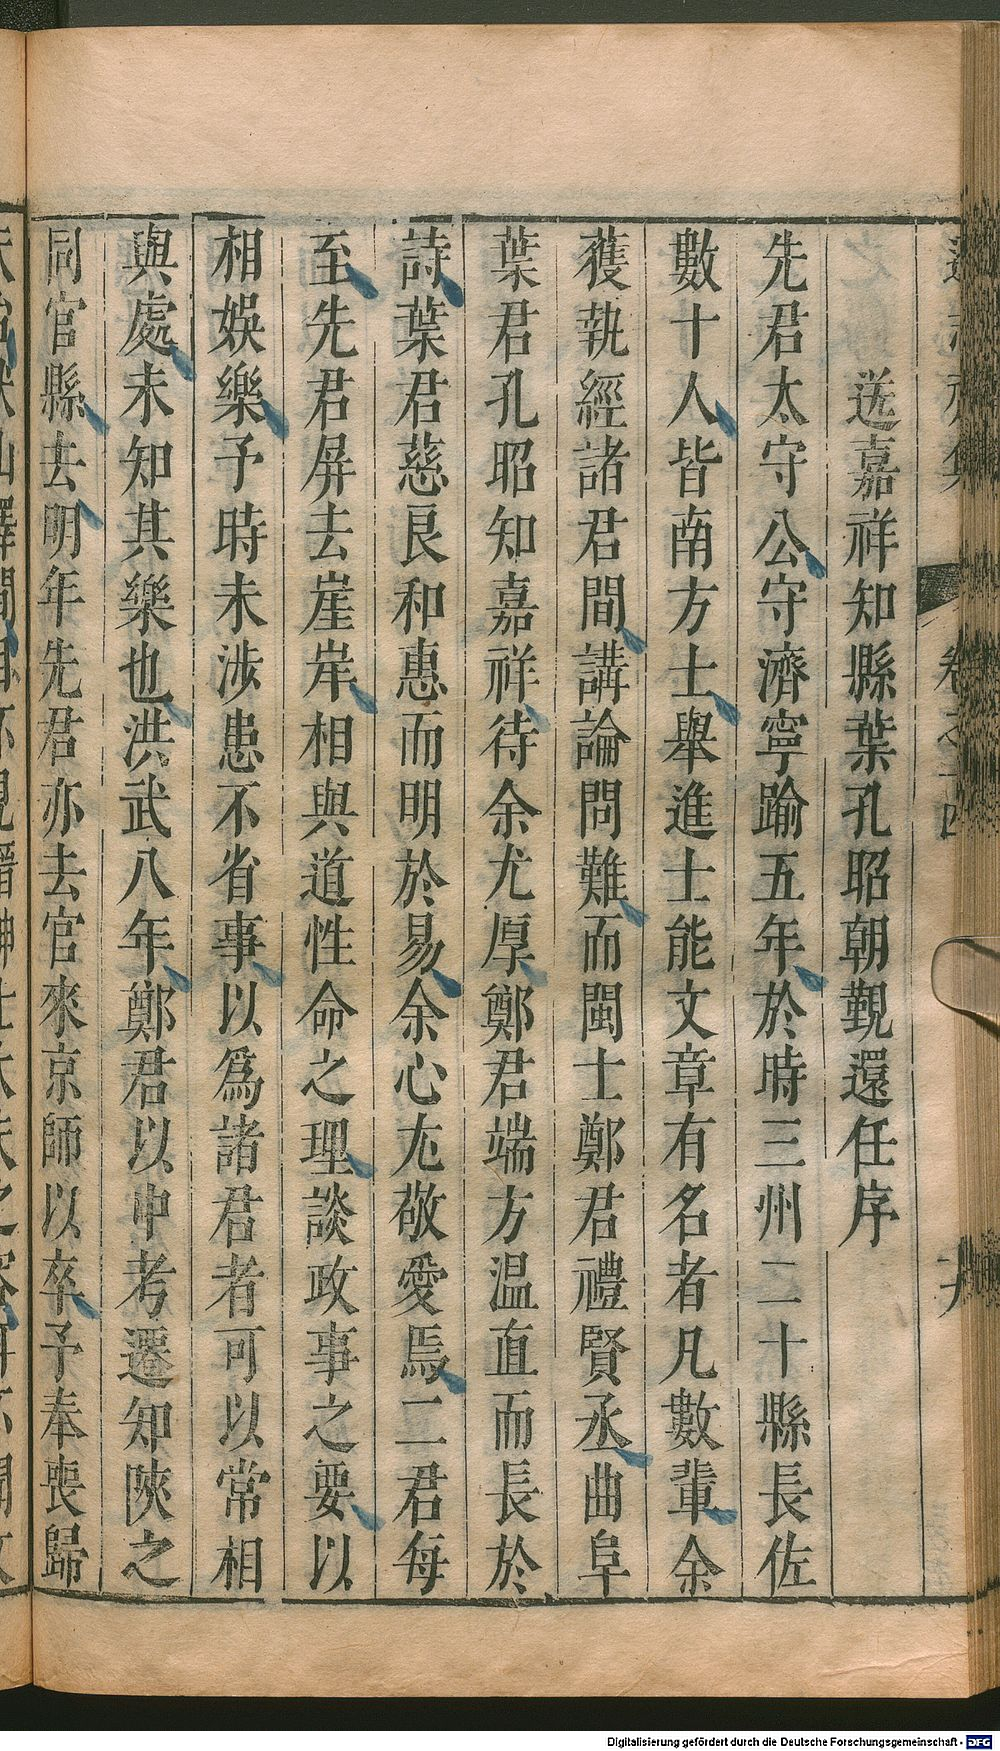 送嘉祥知縣葉孔昭朝覲還任序
先君太守公守濟寧踰五年於時三州二十縣長佐
數十人皆南方士舉進士能文章有名者凡數輩余
獲執經諸君間講論問難而閩士鄭君禮賢丞曲阜
葉君孔昭知嘉祥待余尤厚鄭君端方温直而長於
詩葉君慈良和惠而明於易余心尤敬愛焉二君每
至先君屏去崖岸相與道性命之理談政事之要以
相娛樂予時未涉患不省事以爲諸君者可以常相
與處未知其樂也洪武八年鄭君以中考遷知陝之
同官縣去明年先君亦去官來京師以卒予奉喪歸
Digitalisierung gefördert durch die Deutsche Forschungsgemeinschaft - DFG